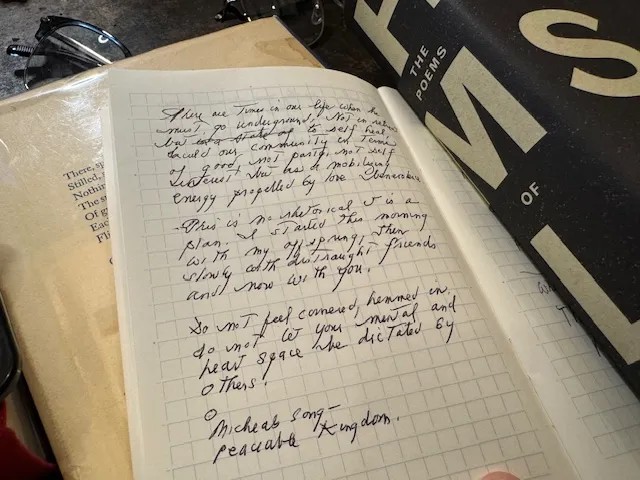 There are Times in our life when he
must, go underground, Not in retreat
but as a state of to self heal,
build our community in Terms
of good, not party, not self
interest but as a mobilizing
energy propelled by love &benevolence
This is no rhetorical it is a
plan. I started this morning
with my offspring, then
slowly with distraught friends
and now with you.
Do not feel cornered, hemmed in,
do not let your mental and
heart space be dictated by
others!
O
Micheal's song
Peaceable Kingdom.
THE
POEMS
OF
MS
There, s
Still,
Nothin
The su
Of g
Eac
Fl